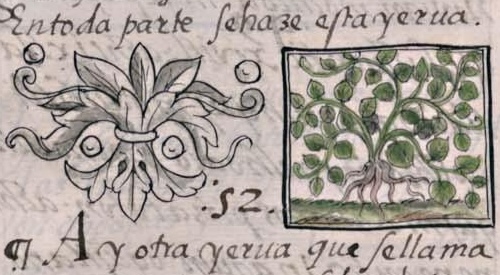 En toda parte sehaze esta yerua.
.52.
¶ Ay otra yerua, que sellama